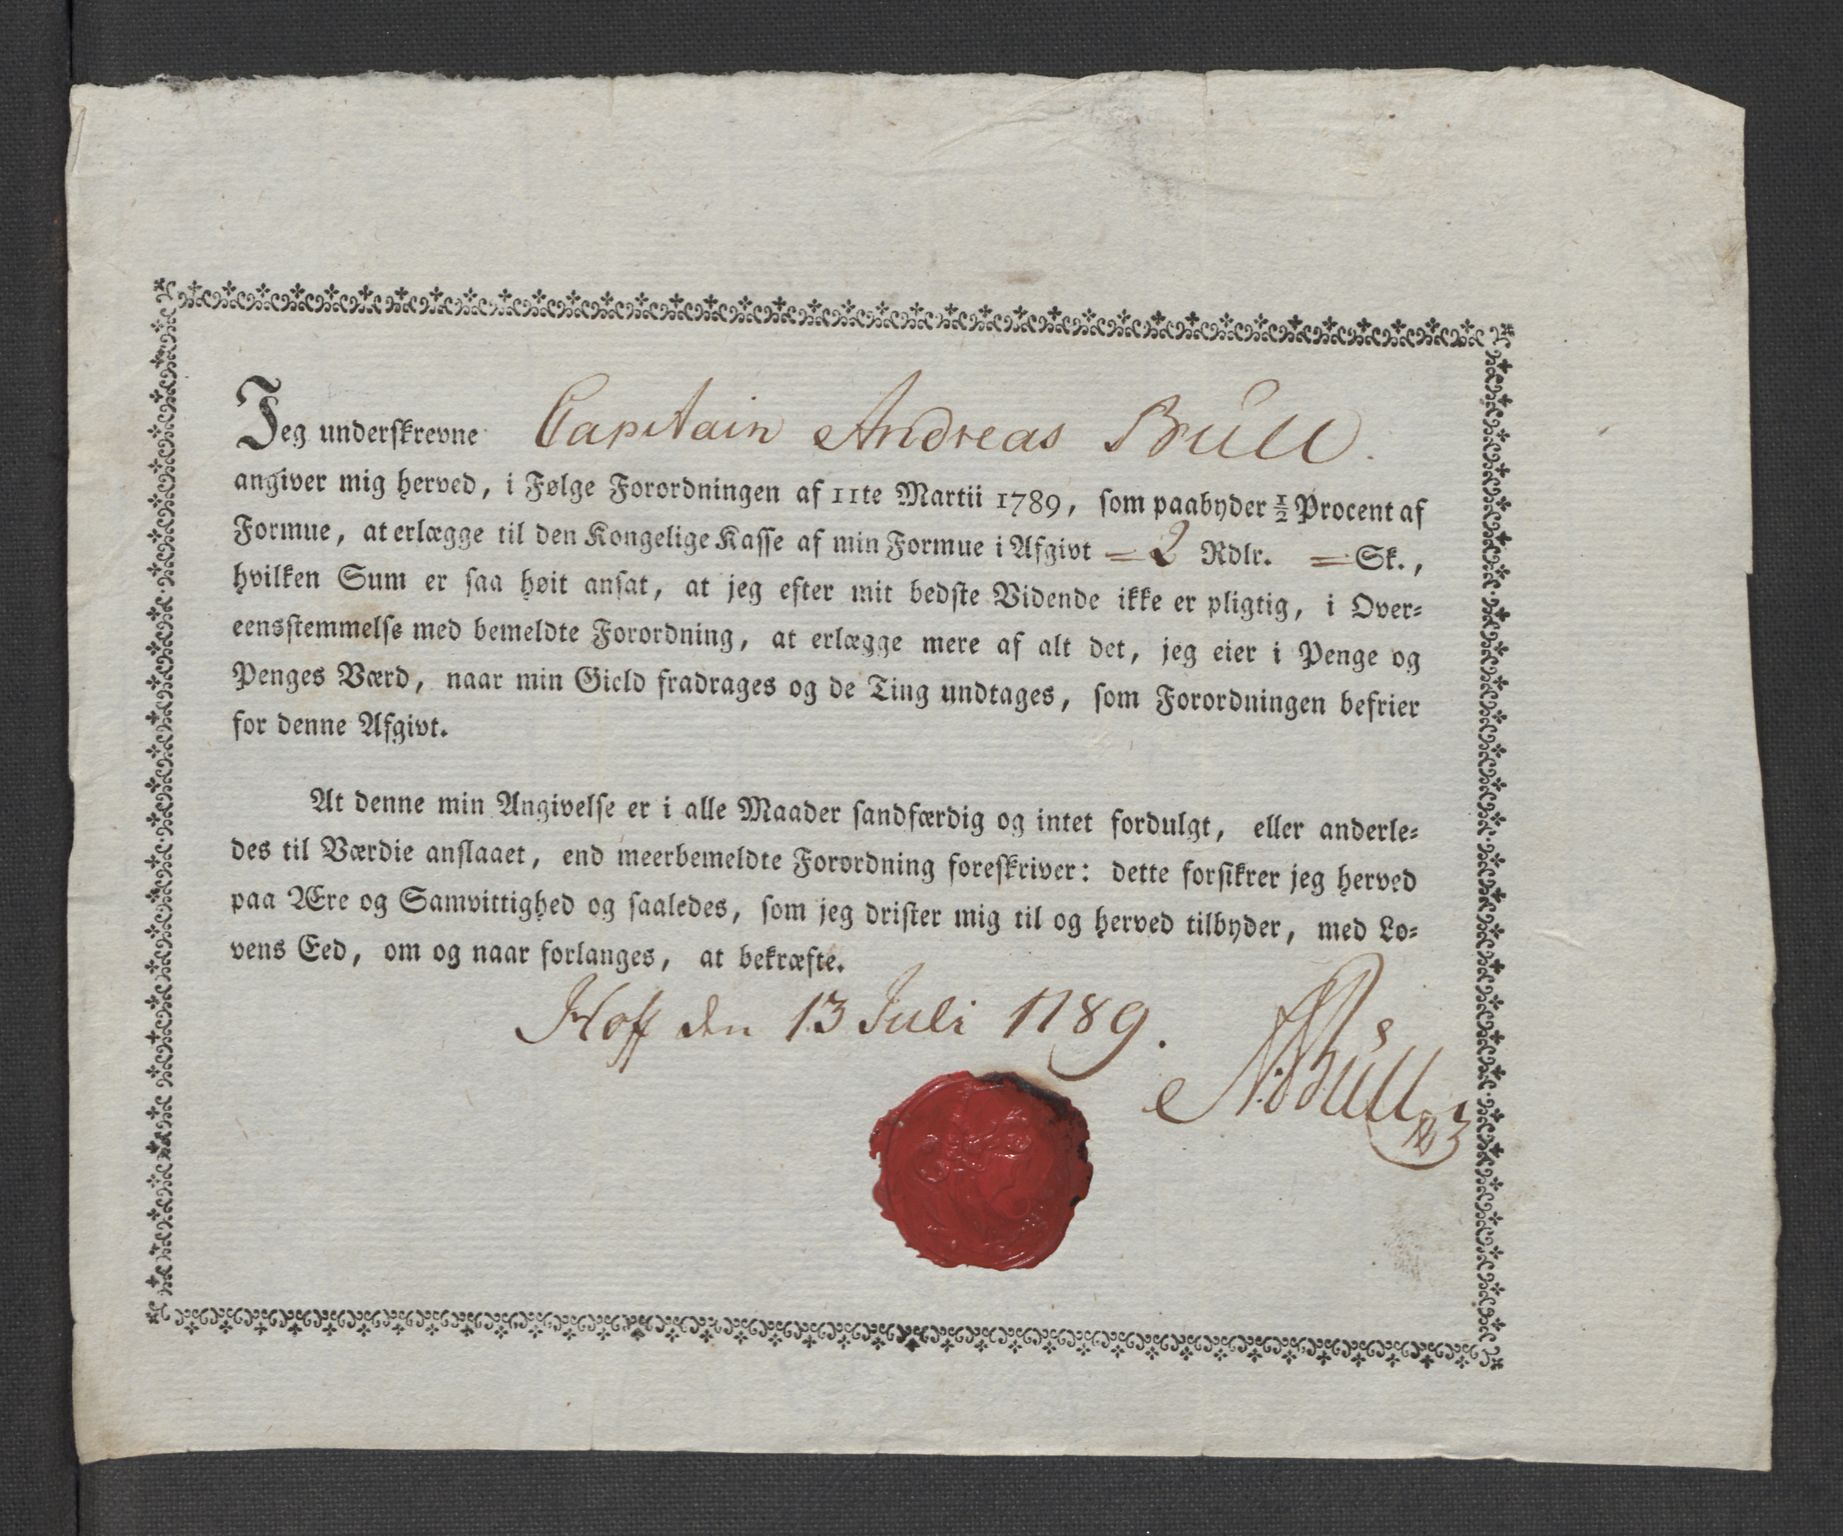 Jeg underskrevne Capitain Andreas Büll.
angiver mig herved, i Følge Forordningen af 11te Martii 1789, som paabyder ½ Procent af
Formue, at erlægge til den Kongelige Kasse af min Formue i Afgivt = 2 Rdlr. = Sk.,
hvilken Sum er saa høit ansat, at jeg efter mit bedste Vidende ikke er pligtig, i Over-
eensstemmelse med bemeldte Forordning, at erlægge mere af alt det, jeg eier i Penge og
Penges Værd, naar min Gield fradrages og de Ting undtages, som Forordningen befrier
for denne Afgivt.
At denne min Angivelse er i alle Maader sandfærdig og intet fordulgt, eller anderle-
des til Værdie anslaaet, end meerbemeldte Forordning foreskriver: dette forsikrer jeg herved
paa Ære og Samvittighed og saaledes, som jeg drister mig til og herved tilbyder, med Lo-
vens Eed, om og naar forlanges, at bekræfte.
Hoff den 13 Juli 1789.
A: Büll